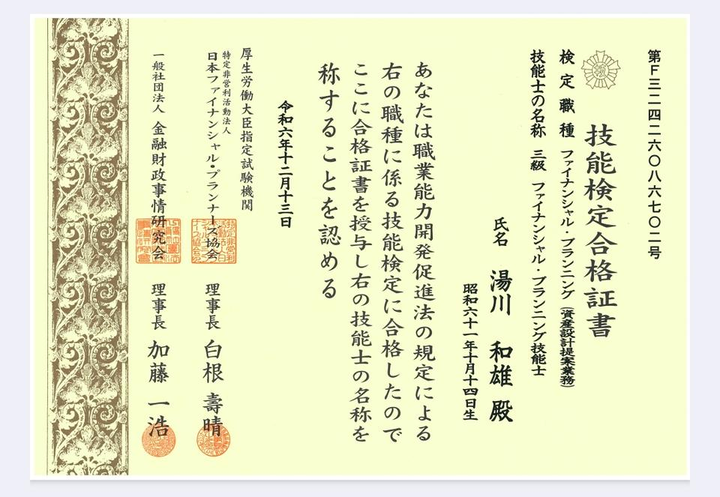 第F三二四二六〇八六七〇二号
技能検定合格証書
検定職種 ファイナンシャル・プランニング(資産設計提案業務)
技能士の名称 三級 ファイナンシャル・プランニング技能士
氏名 湯川 和雄 殿
昭和六十一年十月十四日生
あなたは職業能力開発促進法の規定による
右の職種に係る技能検定に合格したので
ここに合格証書を授与し右の技能士の名称を
称することを認める
令和六年十二月十三日
厚生労働大臣指定試験機関
特定非営利活動法人
日本ファイナンシャル・プランナーズ協会 理事長 白根 壽晴
一般社団法人 金融財政事情研究会 理事長 加藤 一浩